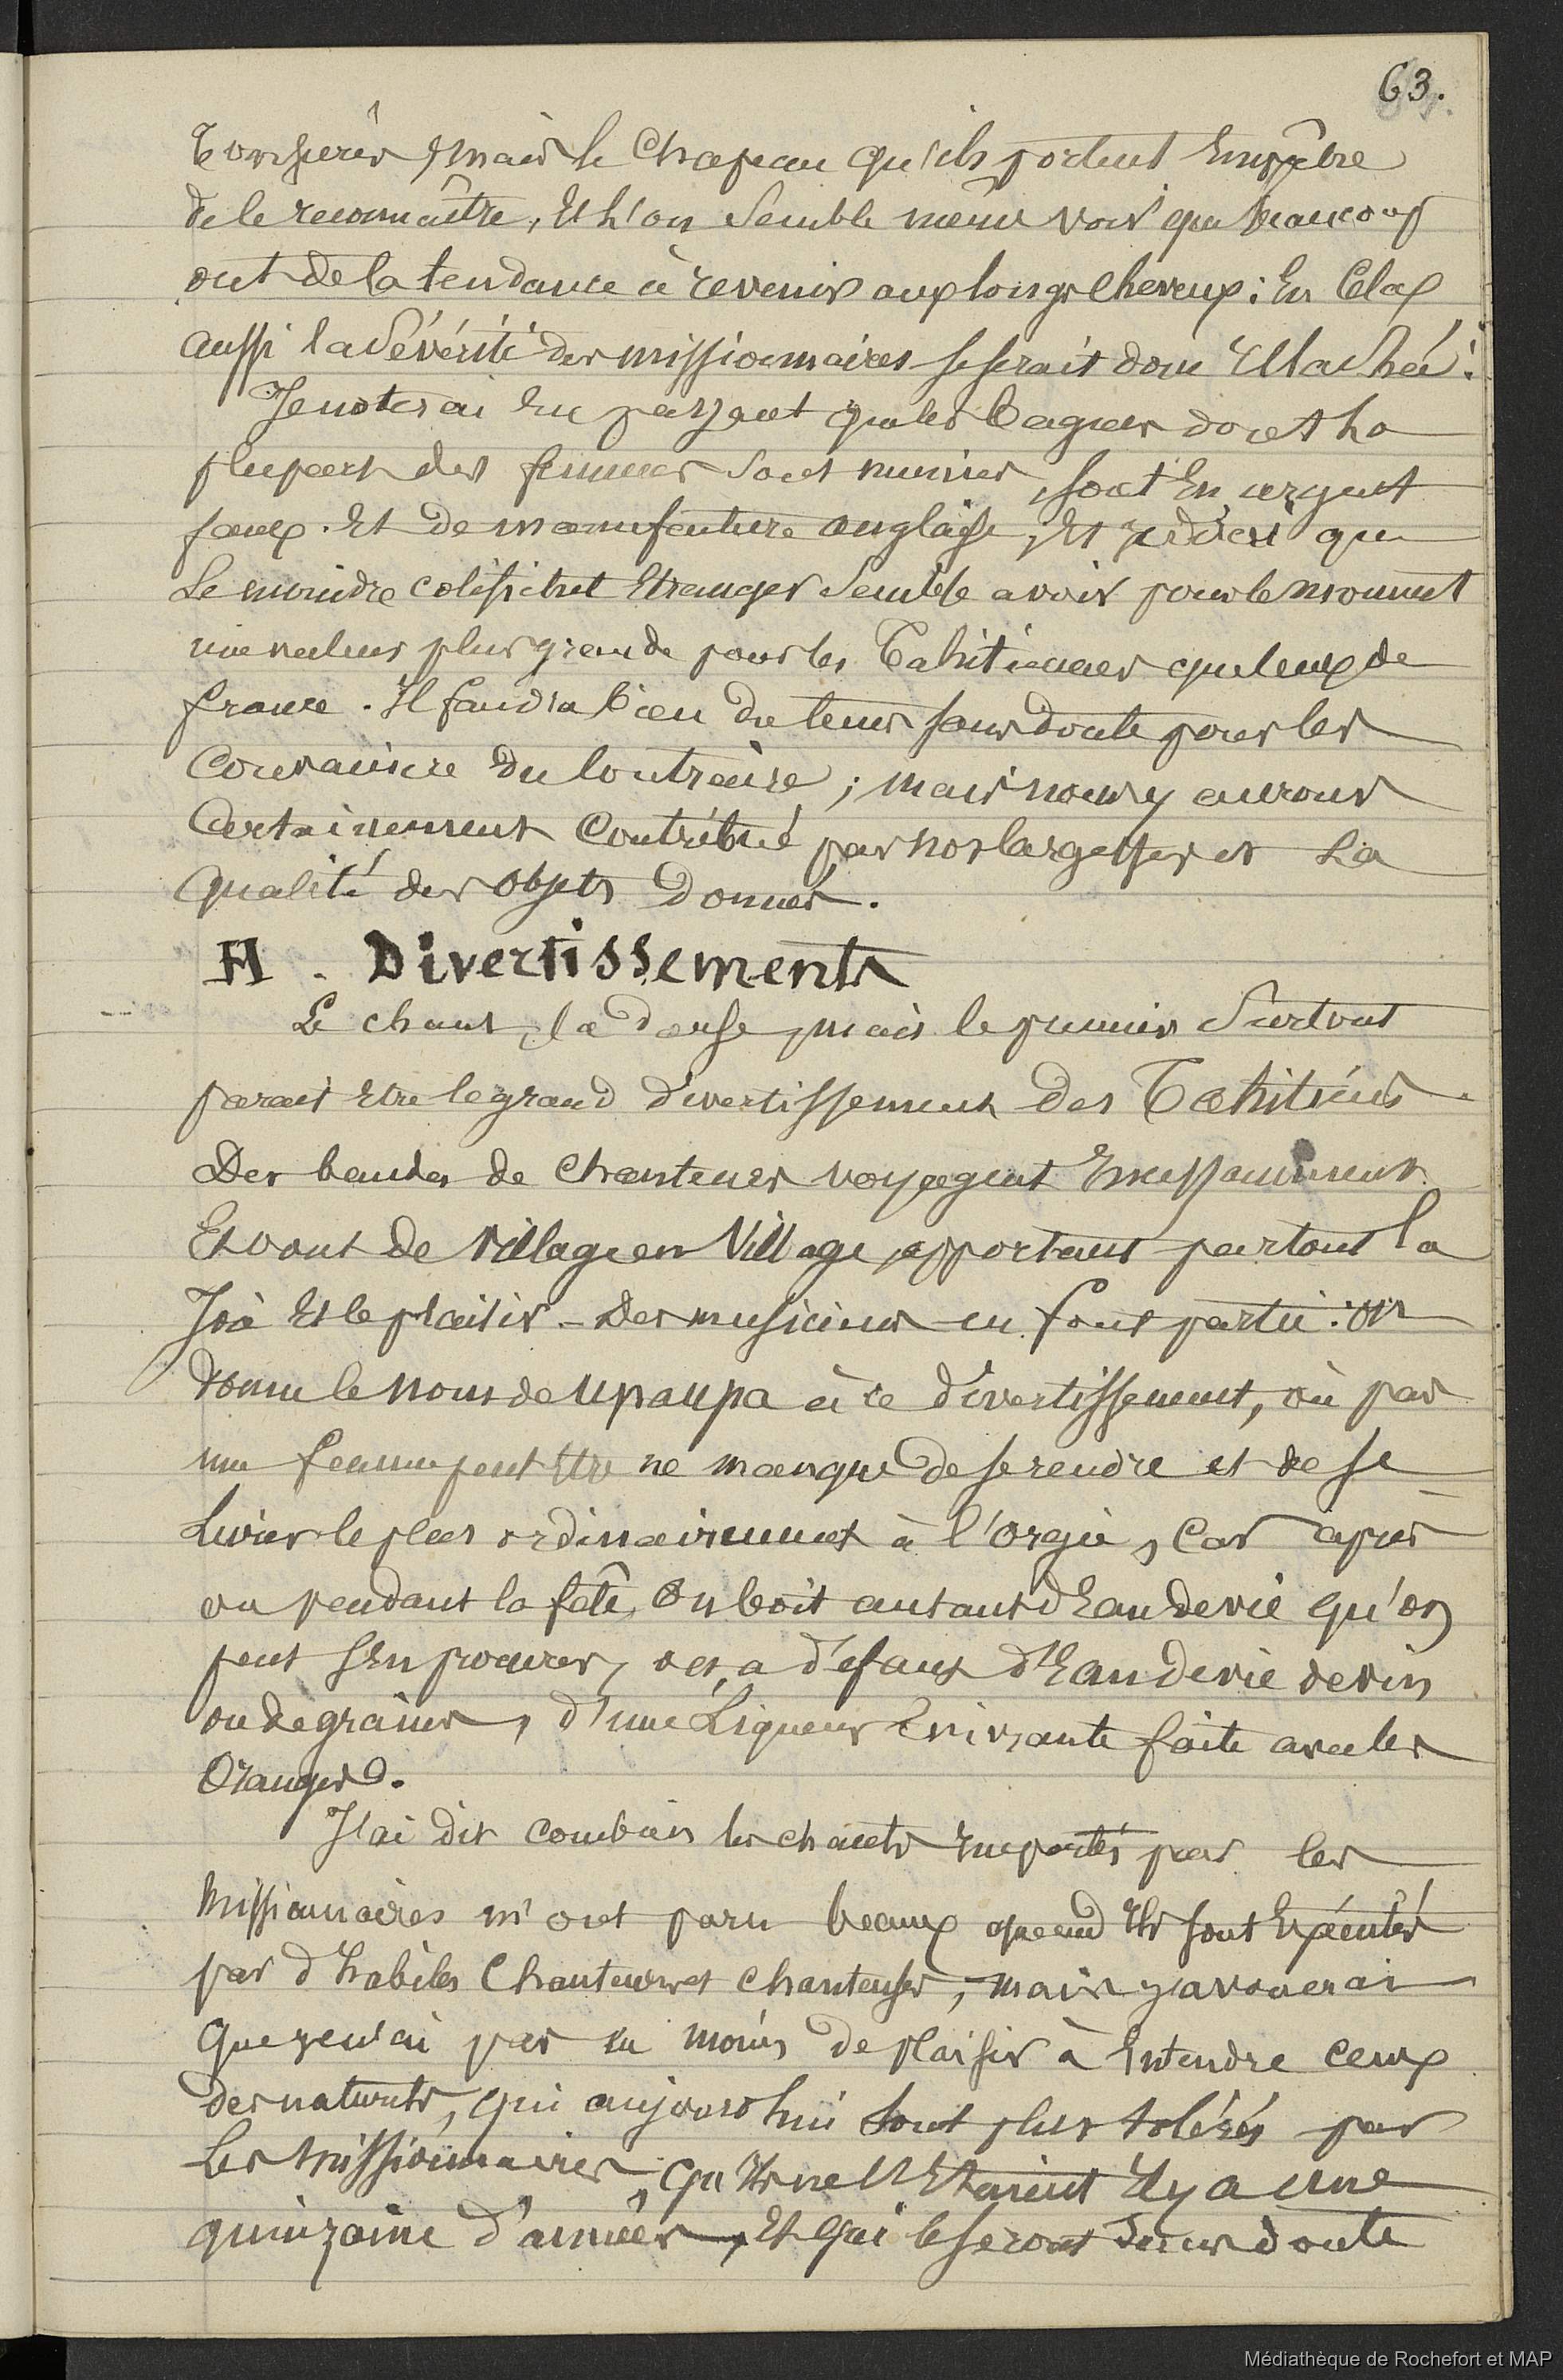 63.
mais le chapeau qu'ils portent empêche
de le reconnaître, et l'on semble même voir que beaucoup
ont de la tendance à revenir aux longs cheveux ; en cela
aussi la sévérité des missionnaires se serait donc relachée.
Je noterai en passant que les bagues dont la
plupart des femmes sont munies, sont en argent
faux. et de manufacture anglaise, et que
le moindre colifichet etranger semble avoir pour le moment
une valeur plus grande pour les Tahitiennes que ceux de
france. Il faudra bien du tems sans doute pour les
convaincre du contraire ; mais nous y aurons
certainement contribué par nos largesses et la
qualité des objets donnés.
H. Divertissements
Le chant, la danse, mais le premier surtout
parait etre le grand divertissement des Tahitiens.
Des bandes de chanteurs voyagent incessamment
Et vont de village en village, apportant partout la
joie et le plaisir - Des musiciens en font partie : on
donne le nom de upaupa à ce divertissement, où pas
une femme peut etre ne manque de se rendre et de se
livrer le plus ordinairement à l'orgie, car après
ou pendant la fête, on boit autant d'eau de vie qu'on
peut s'en procurer, et, a défaut d'Eau de vie de vin
ou de grains, d'une Liqueur enivrante faite avec les
oranges.
J'ai dit combien les chants importés par les
missionnaires m'ont paru beaux quand ils sont exécutés
par d'habiles chanteurs et chanteuses, mais j'avouerai
que je n'ai pas eu moins de plaisir à entendre ceux
des naturels, qui aujourd'hui sont plus tolérés par
les missionnaires, qu'ils ne l'etaient il y a une
quinzaine d'années, et qui le seront sans doute
Médiathèque de Rochefort et MAP